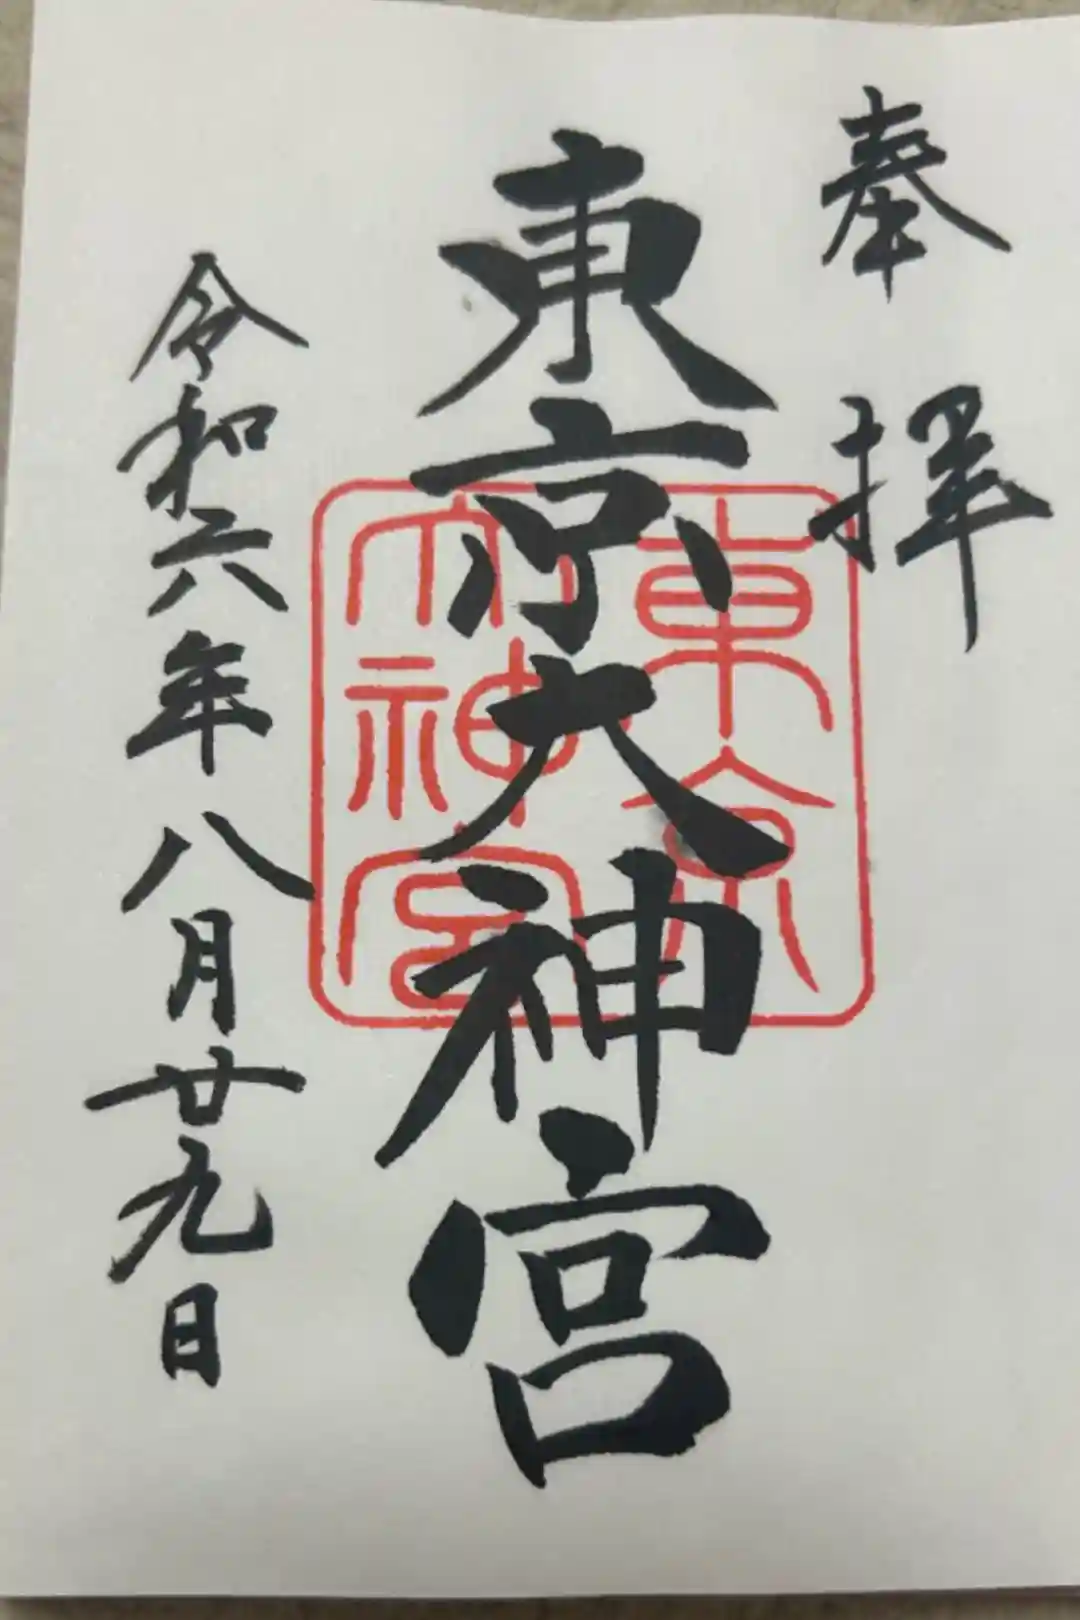 奉拝
東京大神宮
東京
大神宮
令和六年八月廿九日